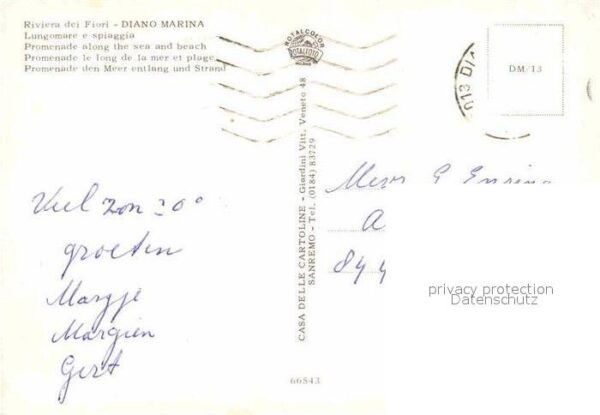 Riviera dei Fiori - DIANO MARINA
Lungomare e spiaggia
Promenade along the sea and beach
Promenade le long de la mer et plage
Promenade den Meer entlang und Strand
ROTALCOLOR
ROTALFOTO
DM/13
CASA DELLE CARTOLINE - Giardini Vitt. Veneto 48
SANREMO - Tel. (0184) 83729
Veel zon 30°
groeten
Margje
Margien
Gert
A
844
privacy protection
Datenschutz
66543